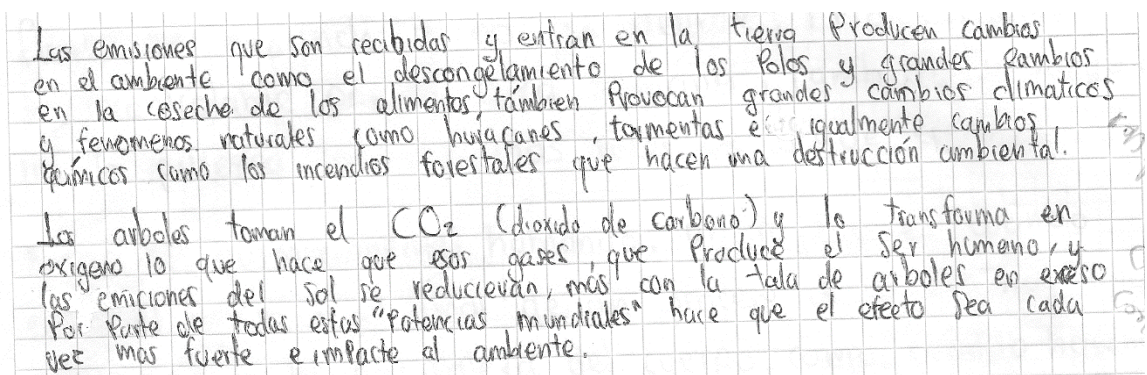 Las emisiones que son recibidas y entran en la tierra Producen cambios
en el ambiente como el descongelamiento de los Polos y grandes cambios
en la coseche de los alimentos támbien Provocan grandes cambios climaticos
y fenomenos naturales como huracanes, tormentas e igualmente cambios
químicos como los incendios forestales que hacen una destrucción ambiental.
Los arboles toman el CO₂ (dioxido de carbono) y lo transforma en
oxigeno lo que hace que esos gases, que Produce el ser humano, y
las emiciones del sol se reducieran, mas con la tala de arboles en exceso
Por Parte de todas estas "Potencias mundiales" hace que el efecto sea cada
vez mas fuerte e impacte al ambiente.